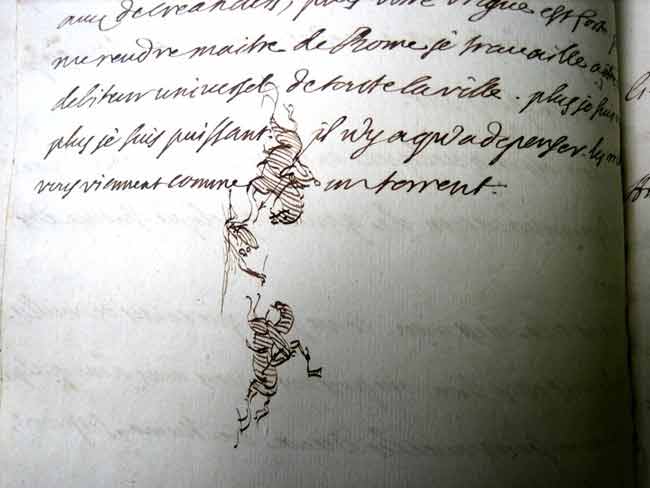 aux de creanciers, plus votre brigue est forte
me rendre maitre de Rome je travaille a être
debiteur universel de toute la ville. plus je suis
plus je suis puissant. il n'y a qu'a depenser. les
vers viennent comme un torrent.